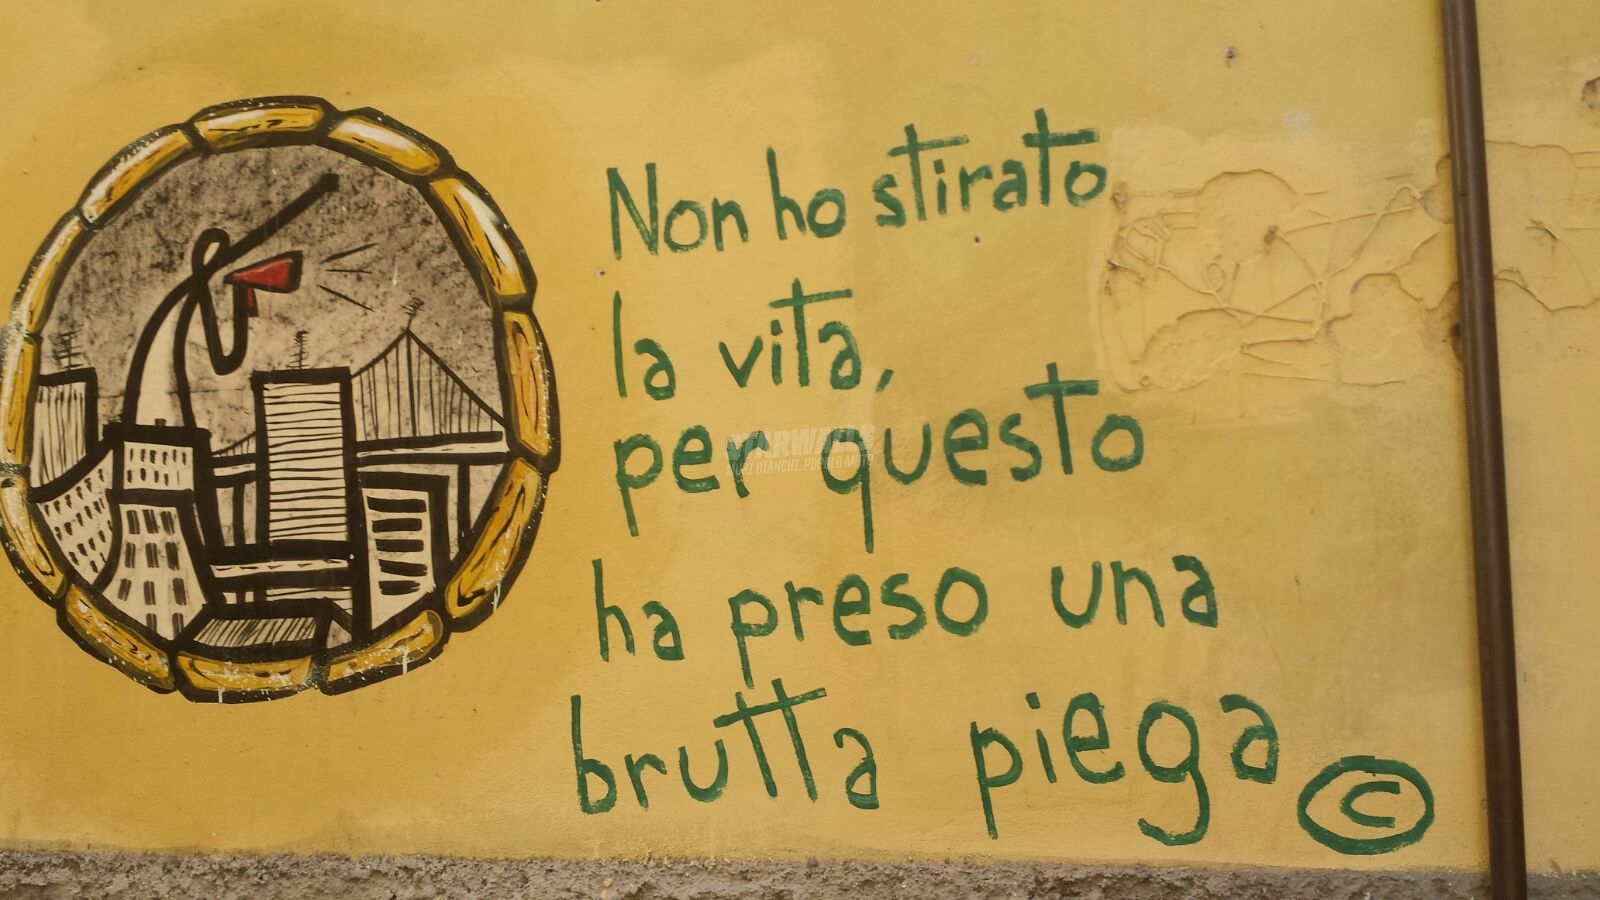 Non ho stirato
la vita,
per questo
ha preso una
brutta piega
©
STARWALLS
MURI BIANCHI, POPOLO MUTO